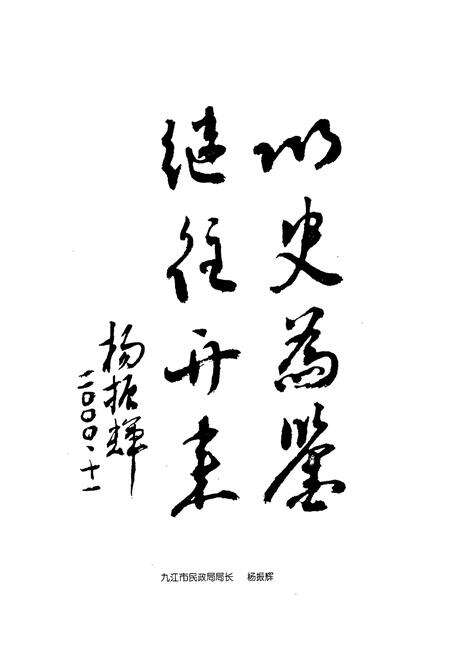 以史為鉴
继往开来
杨振輝
二〇〇〇、十一
九江市民政局局长 杨振辉